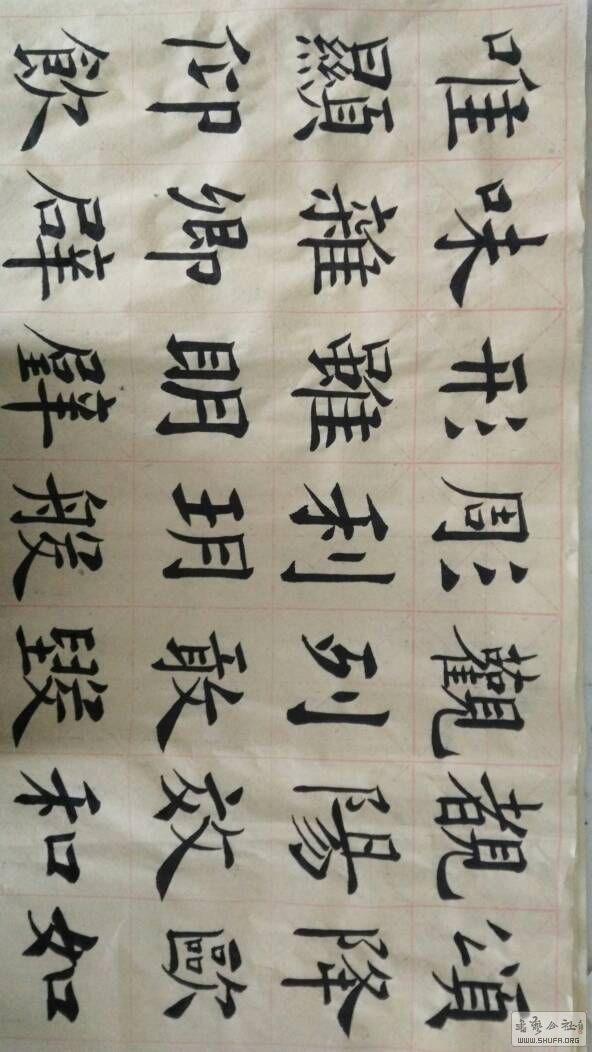 唯味形彫觀覩頌
顯雜雖利列陽降
仰卿明玥敢效歐
飲辟般毀和如
書藝公社
WWW.SHUFA.ORG